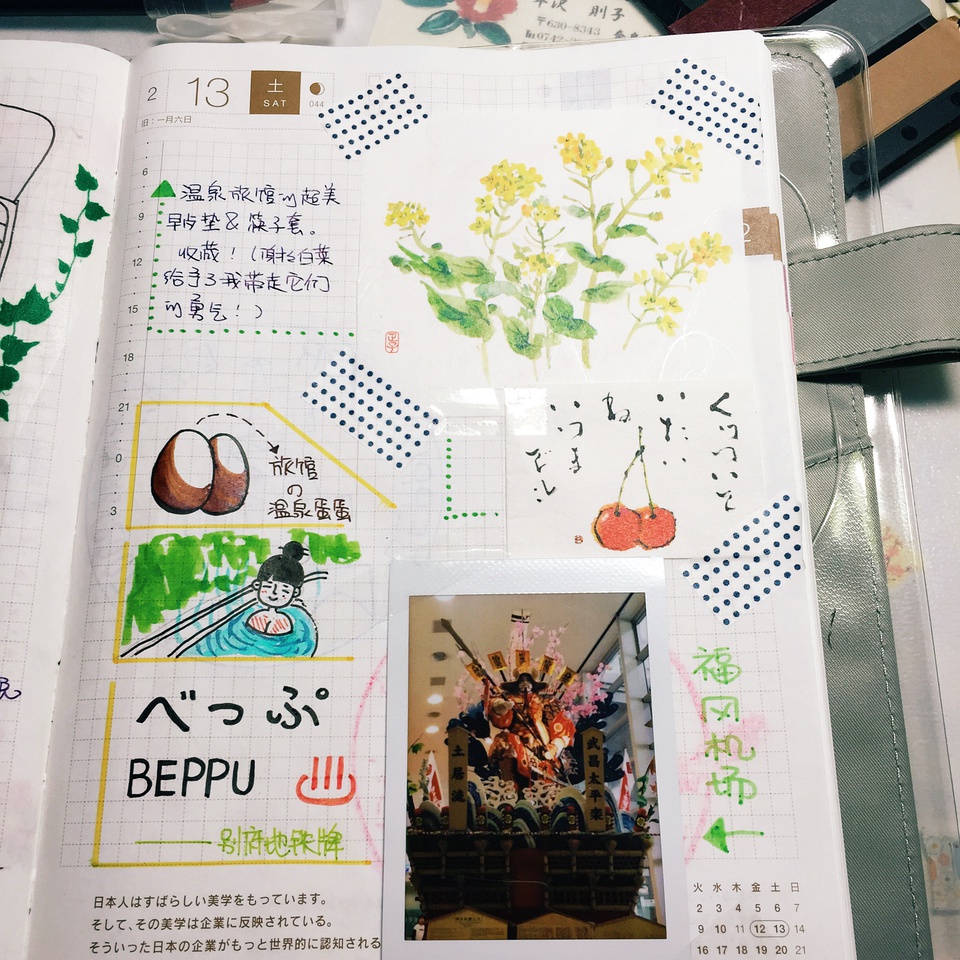 平沢 則子
〒630-8343
2 13 土 SAT 044
旧:一月六日
6
9
12
15
18
21
0
3
温泉旅馆的超美
早点垫&筷子套。
收藏!(谢谢白菜
给予了我带走它们
的勇气!)
正子
くっついて
いたい
ね
いつま
でも
2
旅馆
の
温泉蛋蛋
べっぷ
BEPPU
别府地铁牌
土居流
武昌太平楽
福冈机场
日本人はすばらしい美学をもっています。
そして、その美学は企業に反映されている。
そういった日本の企業がもっと世界的に認知される
火 水 木 金 土 日
2 3 4 5 6 7
9 10 11 12 13 14
16 17 18 19 20 21